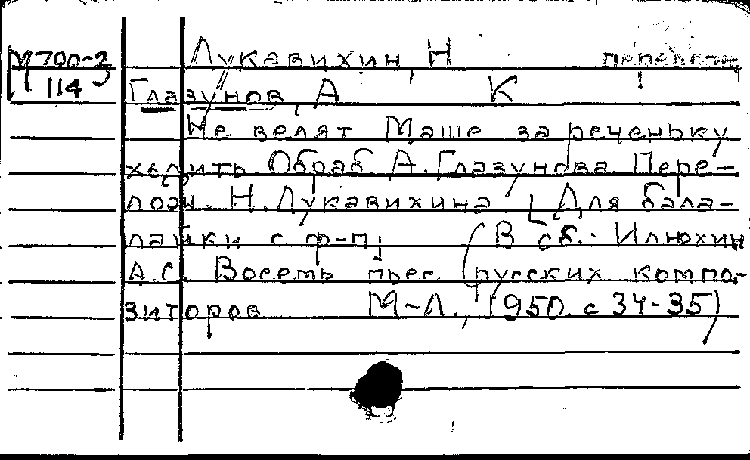 М 700-2
114
Лукавихин, Н перелож
Глазунов, А К
Не велят Маше за реченьку
ходить Обраб А. Глазунова Пере-
лож. Н. Лукавихина [Для бала-
лайки с ф-п] (В сб.: Илюхин
А.С. Восемь пьес русских компо-
зиторов М-Л., 1950. с 34-35)